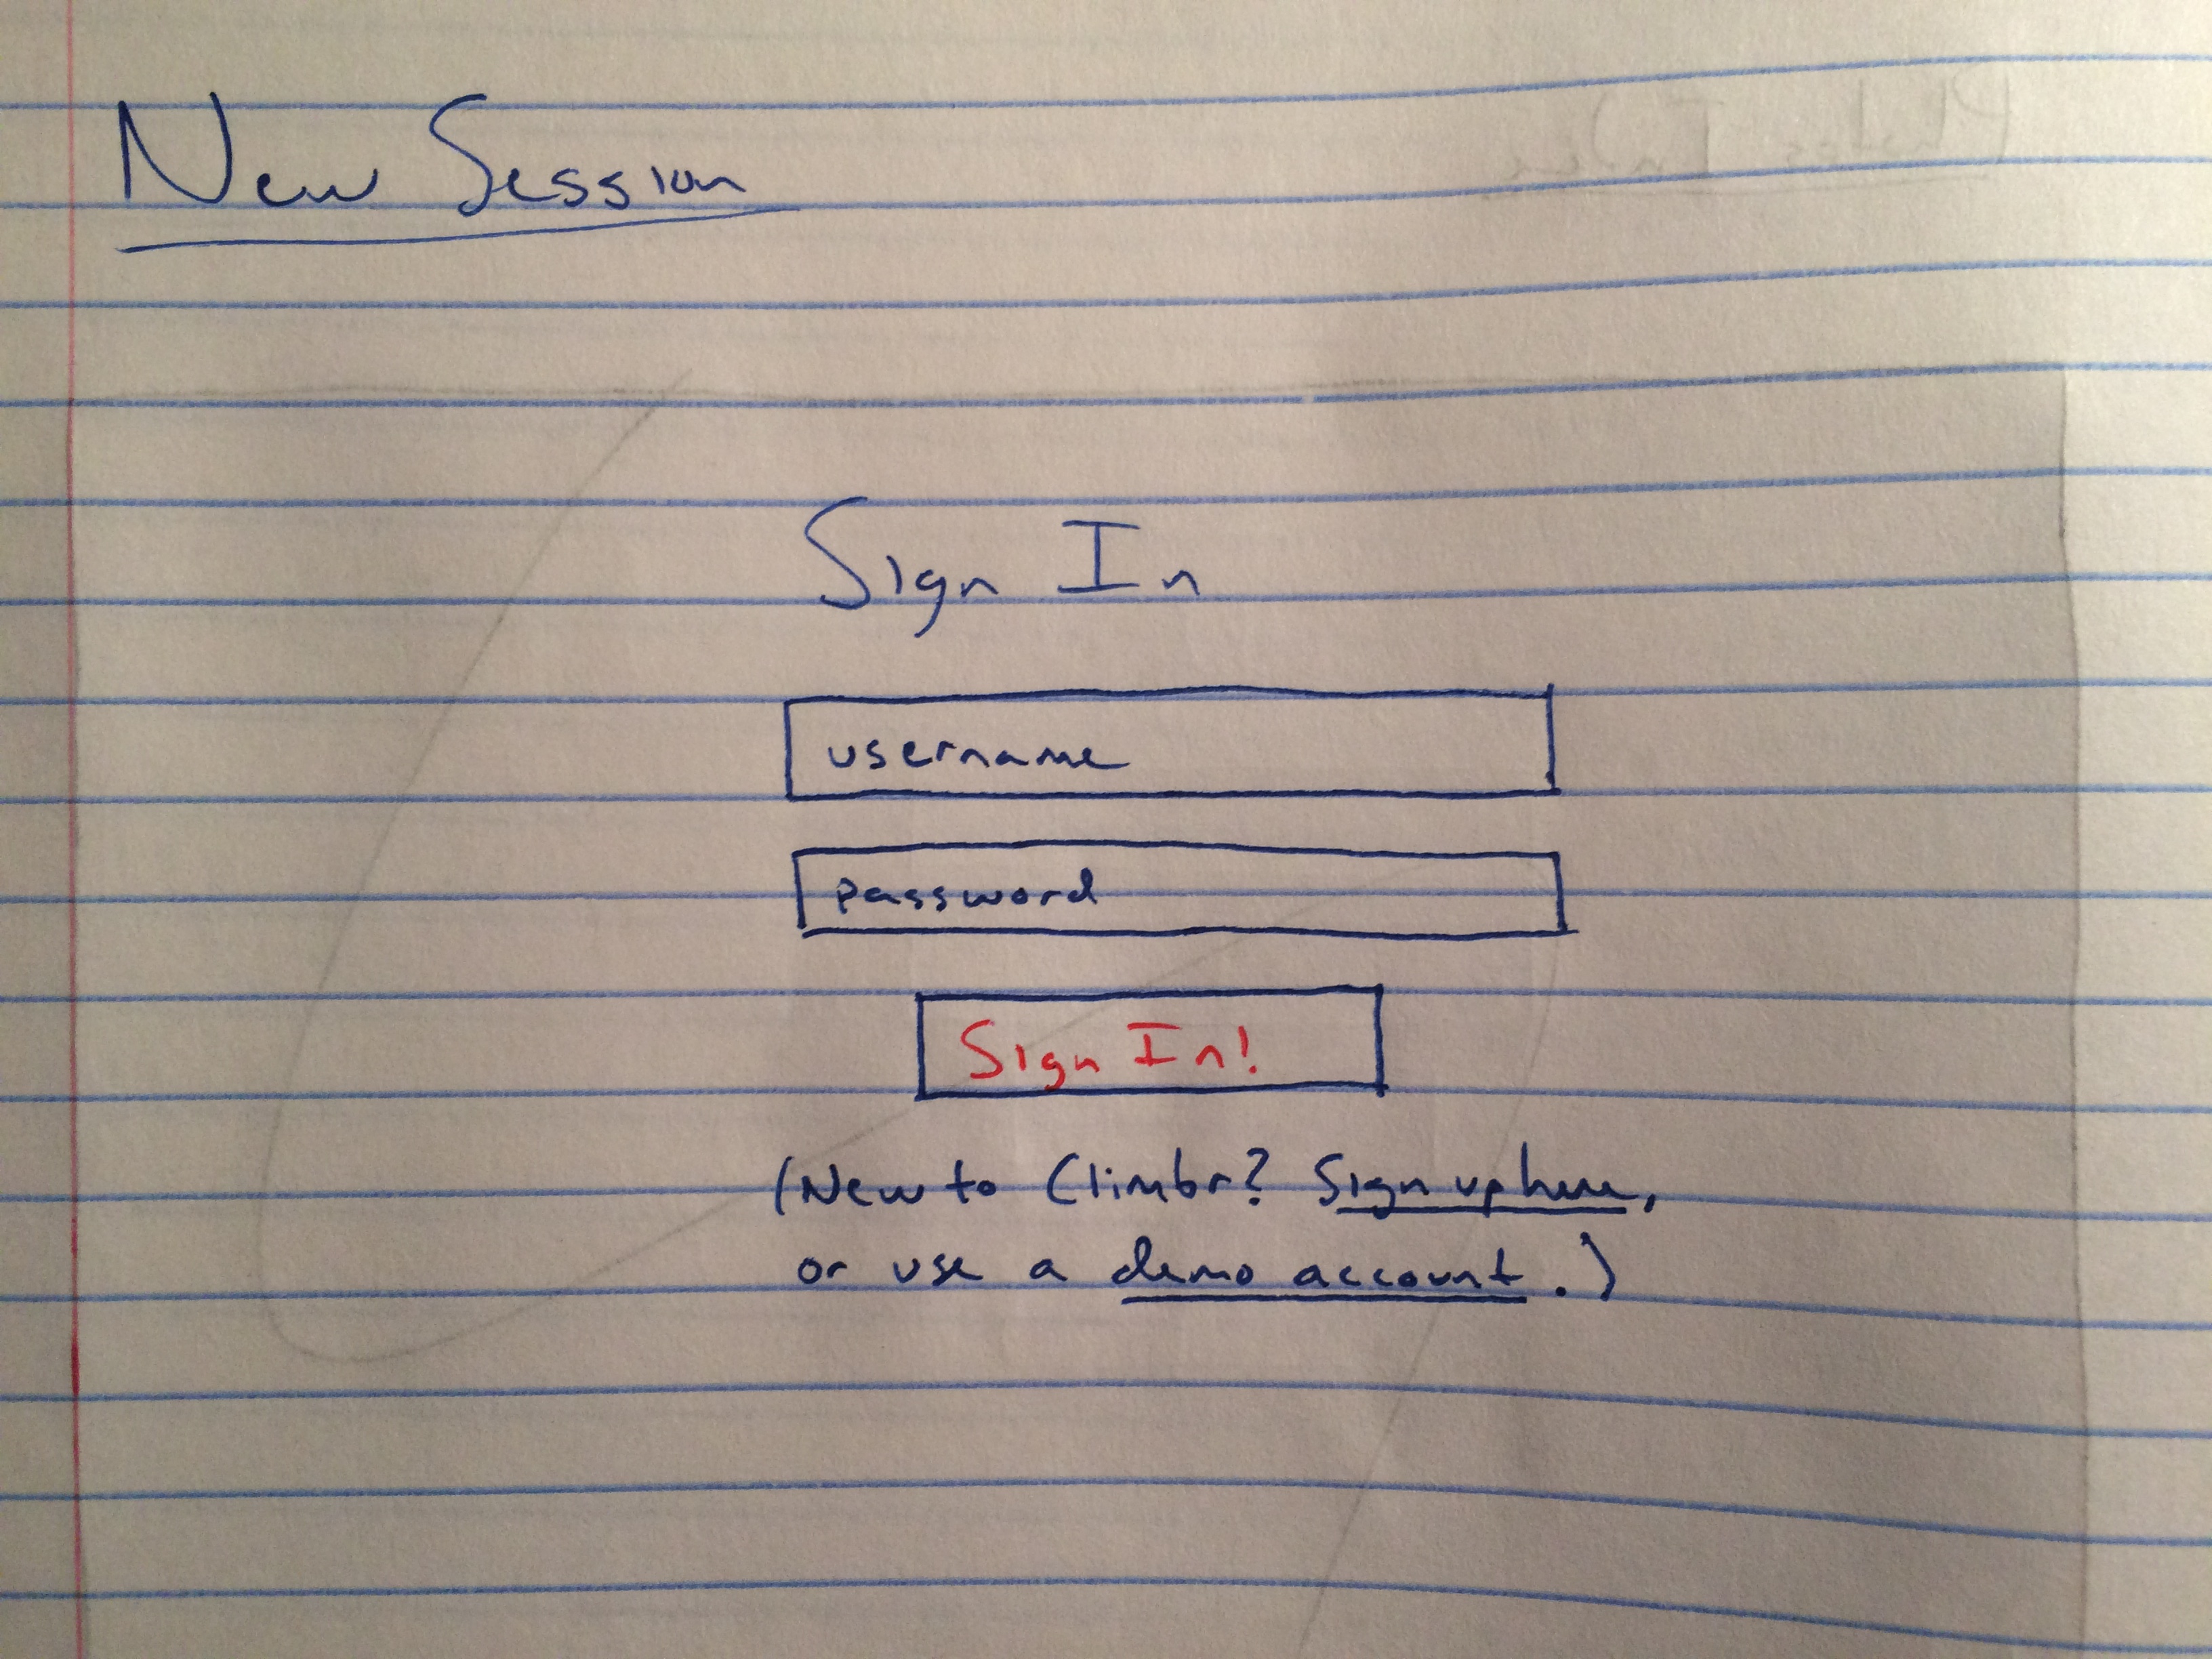 New Session
Sign In
username
password
Sign In!
(New to Climbr? Sign up here,
or use a demo account.)